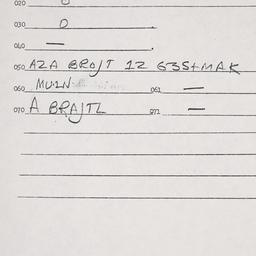 020 0
030 0
040 —
050 AZA BROJT 12 635+MAK
060 MU2N 061 —
070 A BRAJTL 071 —